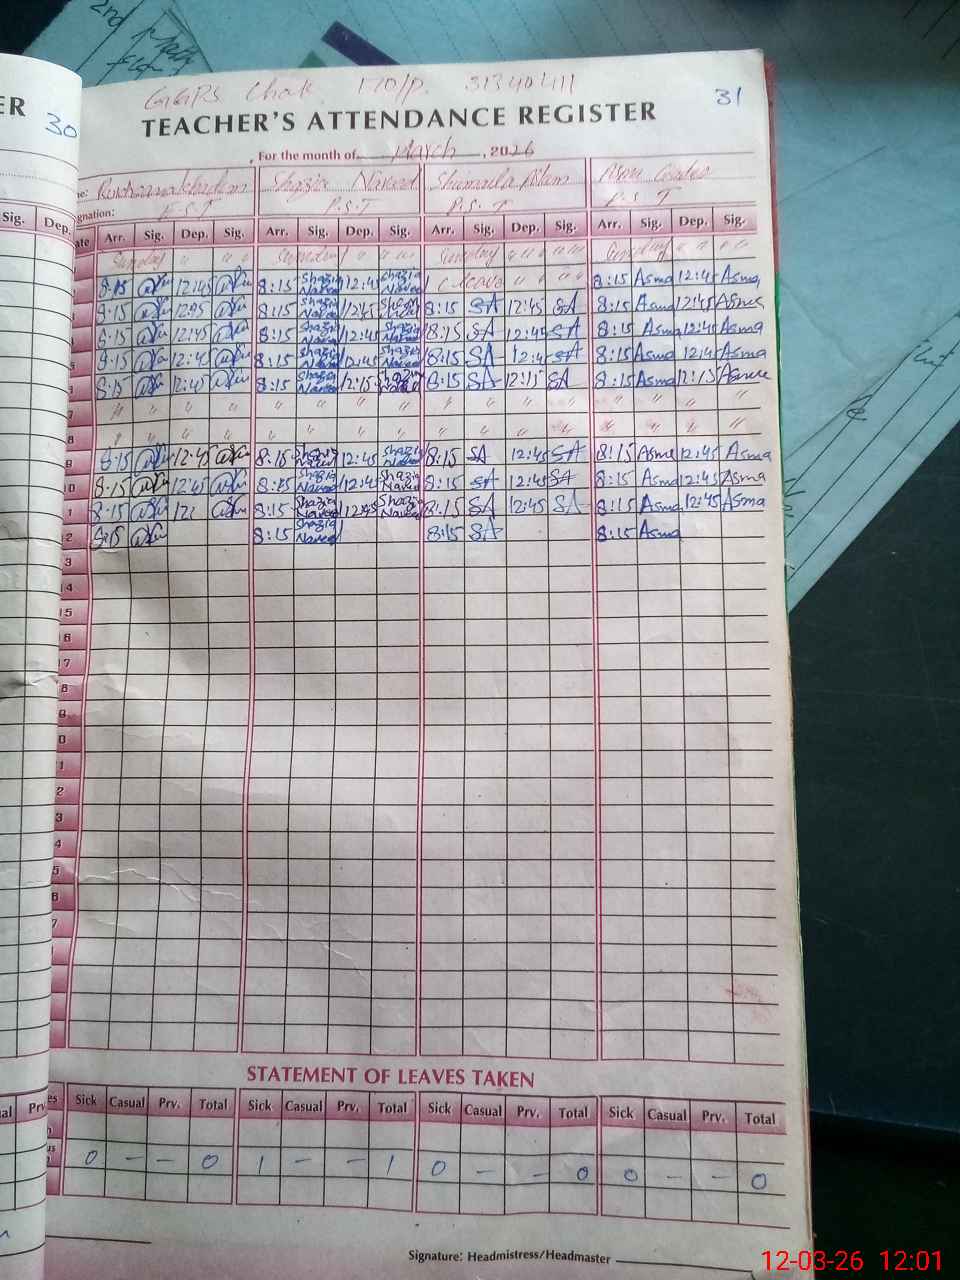 2nd
ER
30
GGPS Chak 170/P. 31340411
31
TEACHER'S ATTENDANCE REGISTER
For the month of March, 2026
Shazia Naveed Shumaila Aslam
gnation: E.S.T P.S.T P.S.T P.S.T
Sig. Dep. ate Arr. Sig. Dep. Sig. Arr. Sig. Dep. Sig. Arr. Sig. Dep. Sig. Arr. Sig. Dep. Sig.
Sunday " " Sunday " " Sunday " " " " Sunday " " " "
8:15 12:45 8:15 Shazia Naveed 12:45 Shazia Naveed Leave " " " 8:15 Asma 12:45 Asma
8:15 12:45 8:15 Shazia Naveed 12:45 Shazia Naveed 8:15 SA 12:45 SA 8:15 Asma 12:45 Asma
8:15 12:45 8:15 Shazia Naveed 12:45 Shazia Naveed 8:15 SA 12:45 SA 8:15 Asma 12:45 Asma
8:15 12:45 8:15 Shazia Naveed 12:45 Shazia Naveed 8:15 SA 12:45 SA 8:15 Asma 12:45 Asma
8:15 12:45 8:15 Shazia Naveed 12:15 Shazia Naveed 8:15 SA 12:15 SA 8:15 Asma 12:15 Asma
7 " " " " " " " " " " " " " " " "
8 " " " " " " " " " " " " " " " "
9 8:15 12:45 8:15 Shazia Naveed 12:45 Shazia Naveed 8:15 SA 12:45 SA 8:15 Asma 12:45 Asma
0 8:15 12:45 8:15 Shazia Naveed 12:45 Shazia Naveed 8:15 SA 12:45 SA 8:15 Asma 12:45 Asma
1 8:15 8:15 Shazia Naveed 12:45 Shazia Naveed 8:15 SA 12:45 SA 8:15 Asma 12:45 Asma
2 8:15 8:15 Shazia Naveed 8:15 SA 8:15 Asma
3
14
15
16
17
8
9
0
1
2
3
4
5
6
7
STATEMENT OF LEAVES TAKEN
al Prv. es Sick Casual Prv. Total Sick Casual Prv. Total Sick Casual Prv. Total Sick Casual Prv. Total
us 0 - - 0 1 - - 1 0 - - 0 0 - - 0
Signature: Headmistress/Headmaster
12-03-26 12:01